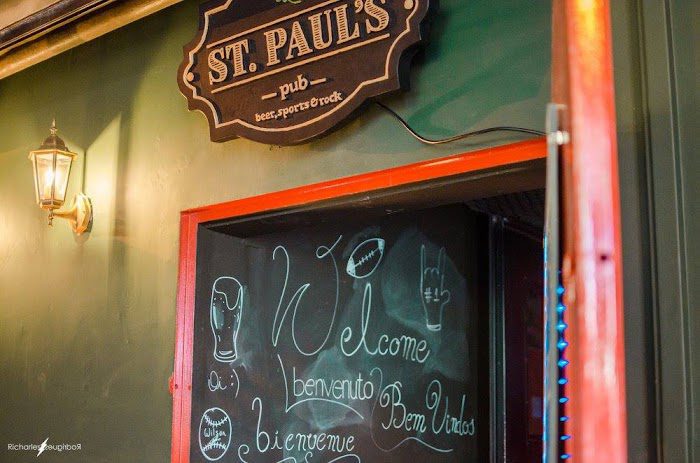 ST. PAUL'S
pub
beer, sports & rock
Welcome
#1
Oi :)
benvenuto
Bem Vindos
Wilson
2
bienvenue
Richarles